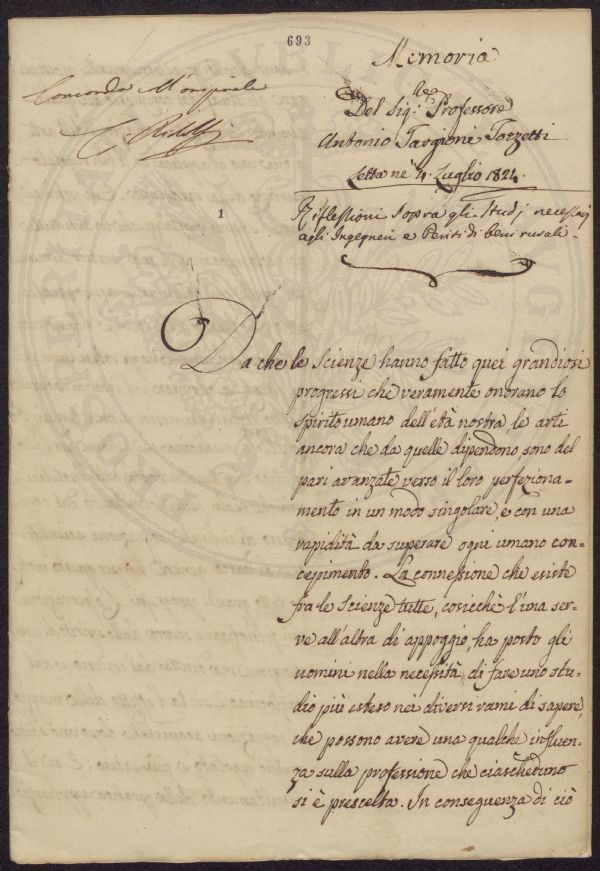 693
Memoria
Concorda all'originale
C. Ridolfi
Del Sig.re Professore
Antonio Targioni Tozzetti
Letta ne' 4. Luglio 1824.
1
Riflessioni sopra gli Studj necessarj
agli Ingegneri e Periti di beni rurali.
Da che le Scienze hanno fatto quei grandiosi
progressi che veramente onorano lo
spirito umano dell'età nostra, le arti
ancora che da quelle dipendono, sono del
pari avanzate verso il loro perfeziona-
mento in un modo singolare, e con una
rapidità da superare ogni umano con-
cepimento. La connessione che esiste
fra le Scienze tutte, cosicchè l'una ser-
ve all'altra di appoggio, ha posto gli
uomini nella necessità di fare uno stu-
dio più esteso nei diversi rami di sapere,
che possono avere una qualche influen-
za sulla professione che ciascheduno
si è prescelta. In conseguenza di ciò